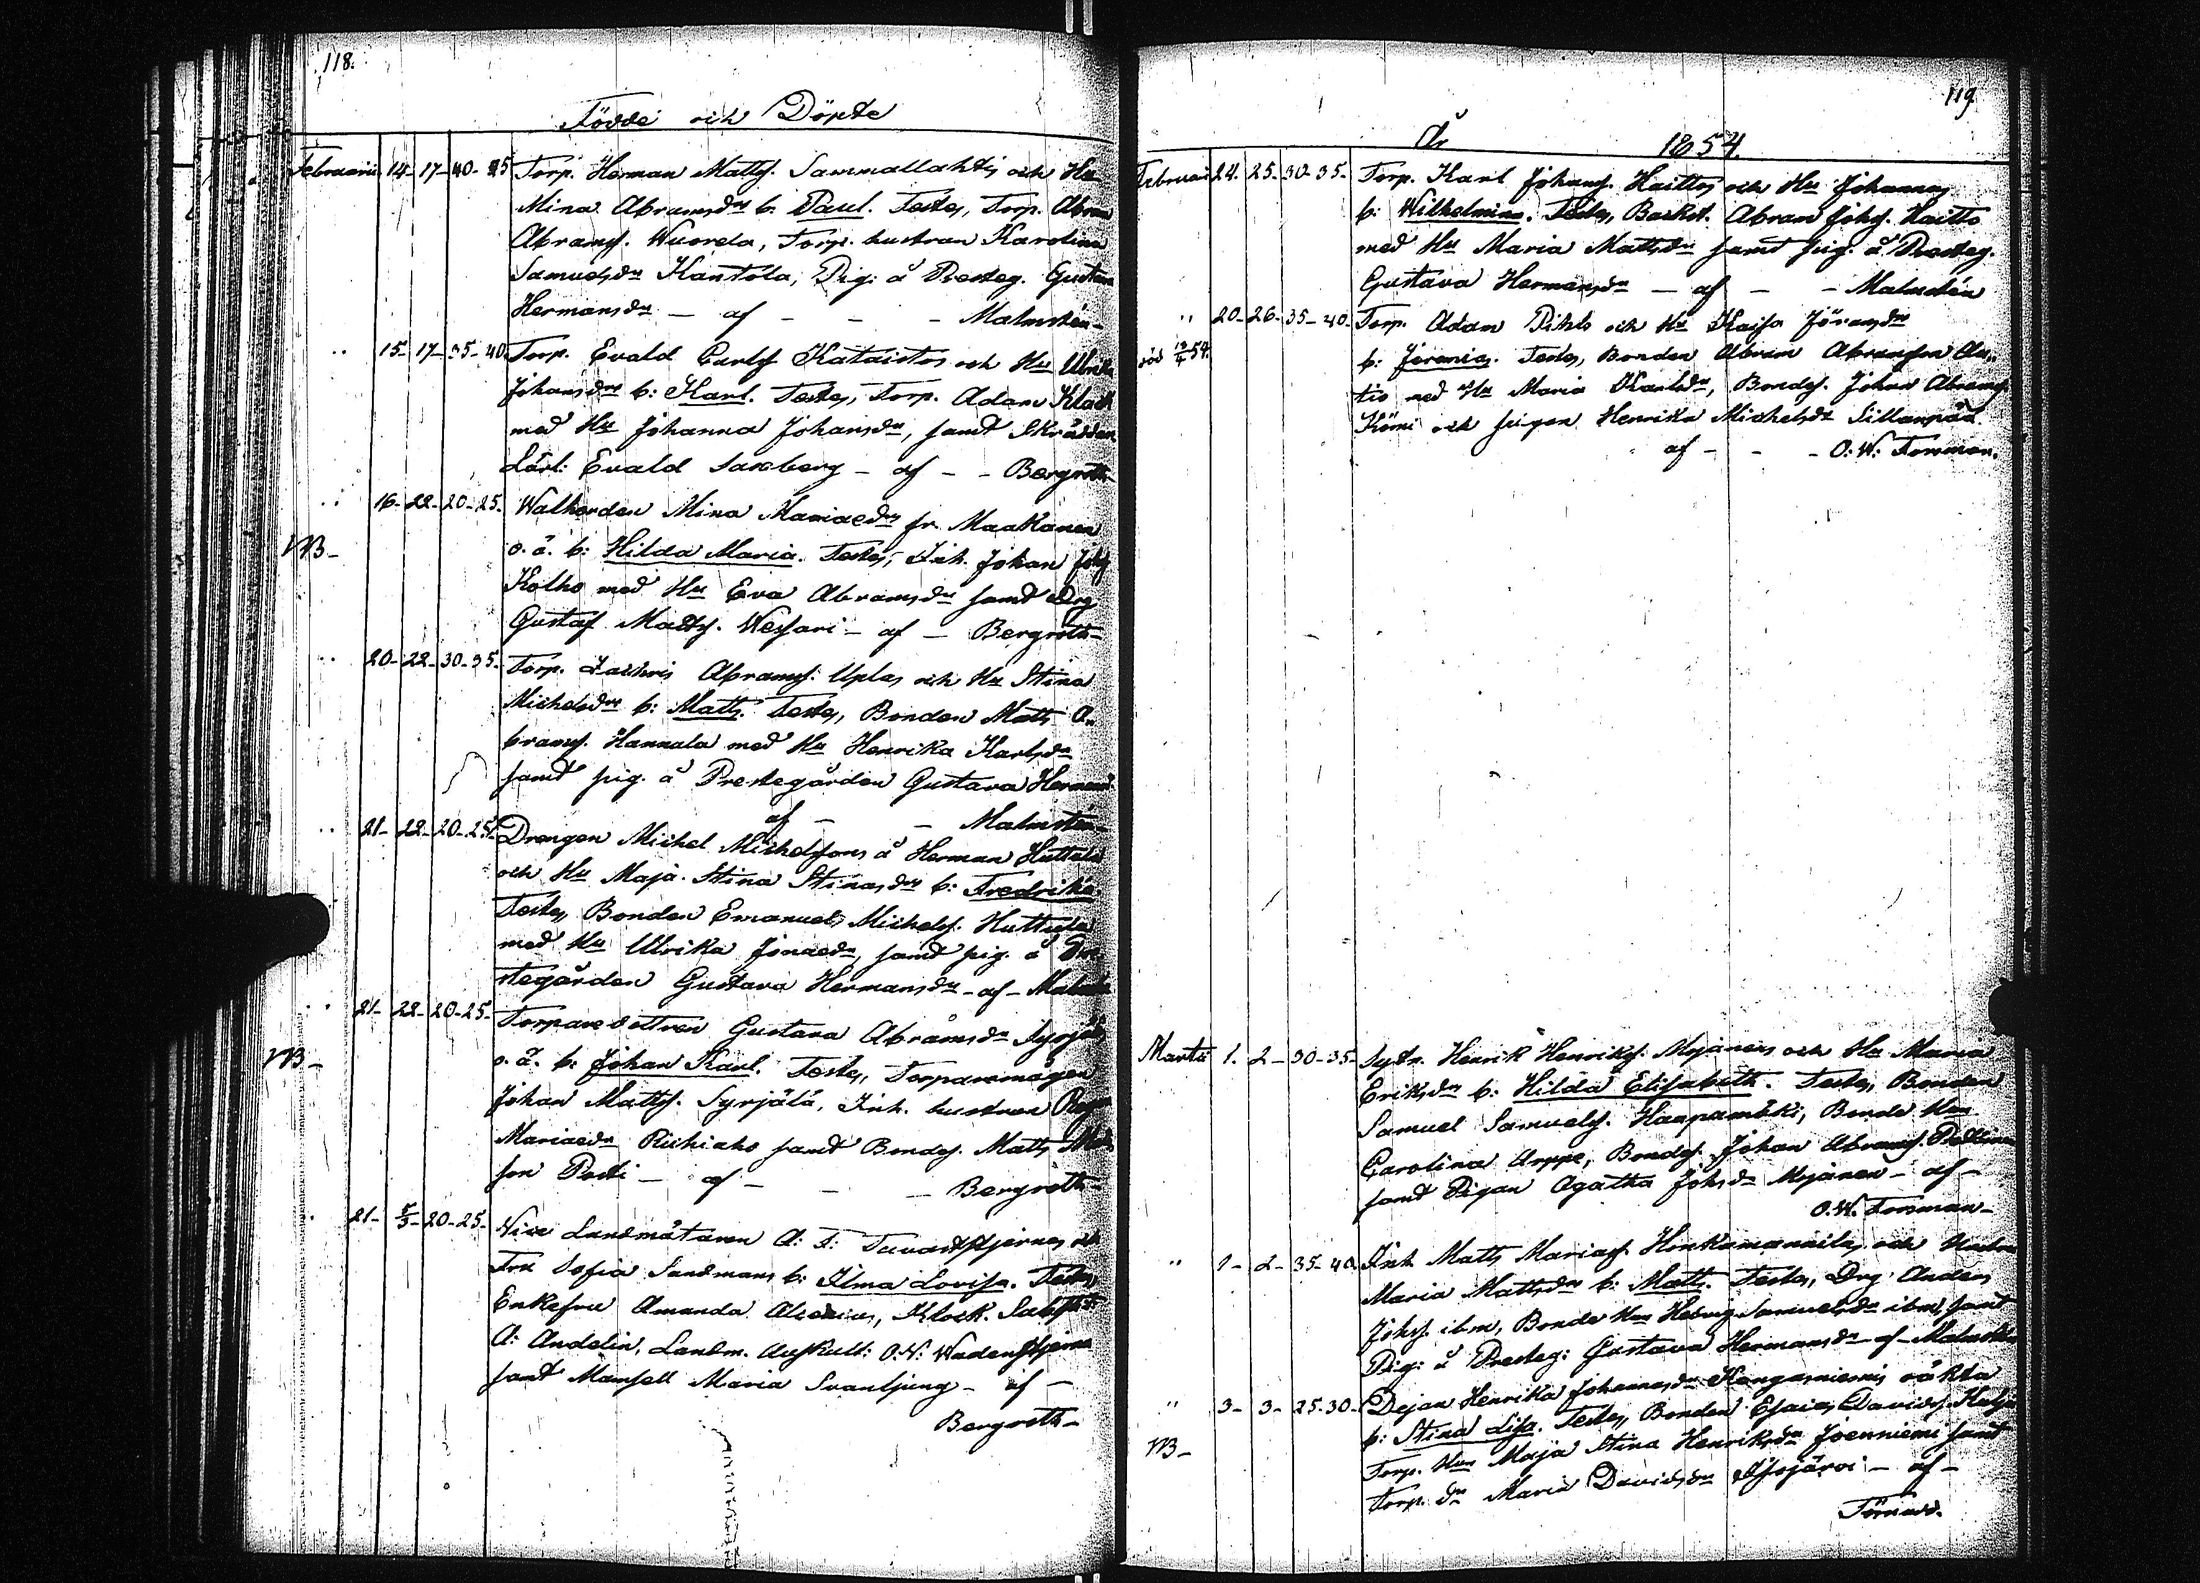 118.
Födde och Döpte
Februarii 14- 17- 40- 45 Torp. Herman Mattss. Sammallahtis och Hu
Mina Abramsdr b: Paul. Testes, Torp. Abram
Abramss. Wuorela, Torp. hustrun Karolina
Samuelsdr Kantola, Pig: å Presteg. Gustava
Hermansdr — af — — — Malmstén-
" 15- 17- 35- 40 Torp. Evald Carlss Kataistos och Hu Ulrika
Johansdrs b: Karl. Testes, Torp. Adam
med Hu Johanna Johansdr, samt Skräddar
Lärl: Evald Saxberg - af - - Bergroth-
" 16- 22- 20- 25- Walhorden Mina Mariaedrs fr. Maakanen
NB- o. ä. b: Hilda Maria. Testes, Inh. Johan Johss
Kolho med Hu Eva Abramsdr samt Drg
Gustaf Mattss. Wessari - af - Bergroth-
" 20- 22- 30- 35- Torp. Zachris Abramss. Uplas och Hu Stina
Michelsdrs b: Matts. Testes, Bonden Matts A-
bramss. Hannula med Hu Henrika Karlsdr
samt pig. å Prestegården Gustava Hermansd
af - - Malmstén-
" 21- 22- 20- 25- Drengen Michel Michelssons å Herman Huttula
och Hu Maja Stina Stinasdrs b: Fredrika.
Testes, Bonden Emanuel Michelss. Huttula
med Hu Ulrika Jonaedr, samt pig. å Pre-
stegården Gustava Hermansdr - af -
" 21- 22- 20- 25- Torparedottren Gustava Abramsdr Syrjäläs
NB- o. ä. b: Johan Karl. Testes, Torparemågen
Johan Mattss. Syrjälä, Inh. hustrun
Mariaedr Riihiaho samt Bondes. Matts Mats-
son Posti - af - - - Bergroth-
" 21- 5/3- 20- 25- Vice Landmätaren A: F: Tavaststjernas och
Fru Sofia Sandmans b: Ilma Lovisa. Testes,
Enkefru Amanda Alcenius, Klock.
A: Andelin, Landm. Auskult: O. W: Wadenstjerna
samt Mamsell Maria Svanljung - af -
Bergroth-
119
År 1854.
Februarii 24. 25- 30- 35- Torp. Karl Johanss. Haittos och Hu Johannas
b: Wilhelmina. Testes, Backst. Abram Johss. Haitto
med Hu Maria Mattsdr samt pig. å Presteg.
Gustava Hermansdr — af - - Malmstén
" 20- 26- 35- 40- Torp. Adam Pihls och Hu Kaisa Jöransdrs
död 19/4 54. b: Jeremias. Testes, Bonden Abram Abramsson Au-
tio med Hu Maria Karlsdr, Bondes. Johan Abramss.
Kömi och pigan Henrika Michelsdr Sillanpää.
af - - - O. W: Forsman.
Martii 1. 2- 30- 35- Sytn. Henrik Henrikss. Myänens och Hu Maria
Eriksdrs b: Hilda Elisabeth. Testes, Bonden
Samuel Samuelss. Haapamäki, Bonde Hun
Carolina Arppe, Bondes. Johan Abramss.
samt Pigan Agatha Johsdr Myänen - af -
O. W. Forsman-
" 1- 2- 35- 40. Inh Matts Mariass. Honkamannilas och Hustru
Maria Mattsdrs b: Matts. Testes, Drg Anders
Johss. ibm, Bonde Hun Hedvig Samuelsdr ibm, samt
Pig: å Presteg: Gustava Hermansdr - af - Malmstén
" 3- 3- 25- 30- Dejan Henrika Johannasdr Kangasniemis oäkta
NB- b: Stina Lisa. Testes, Bonden Esaias Davidss.
Torp. Hun Maja Stina Henriksdr Joenniemi samt
Torp. dr Maria Davidsdr - af -
Törnudd.